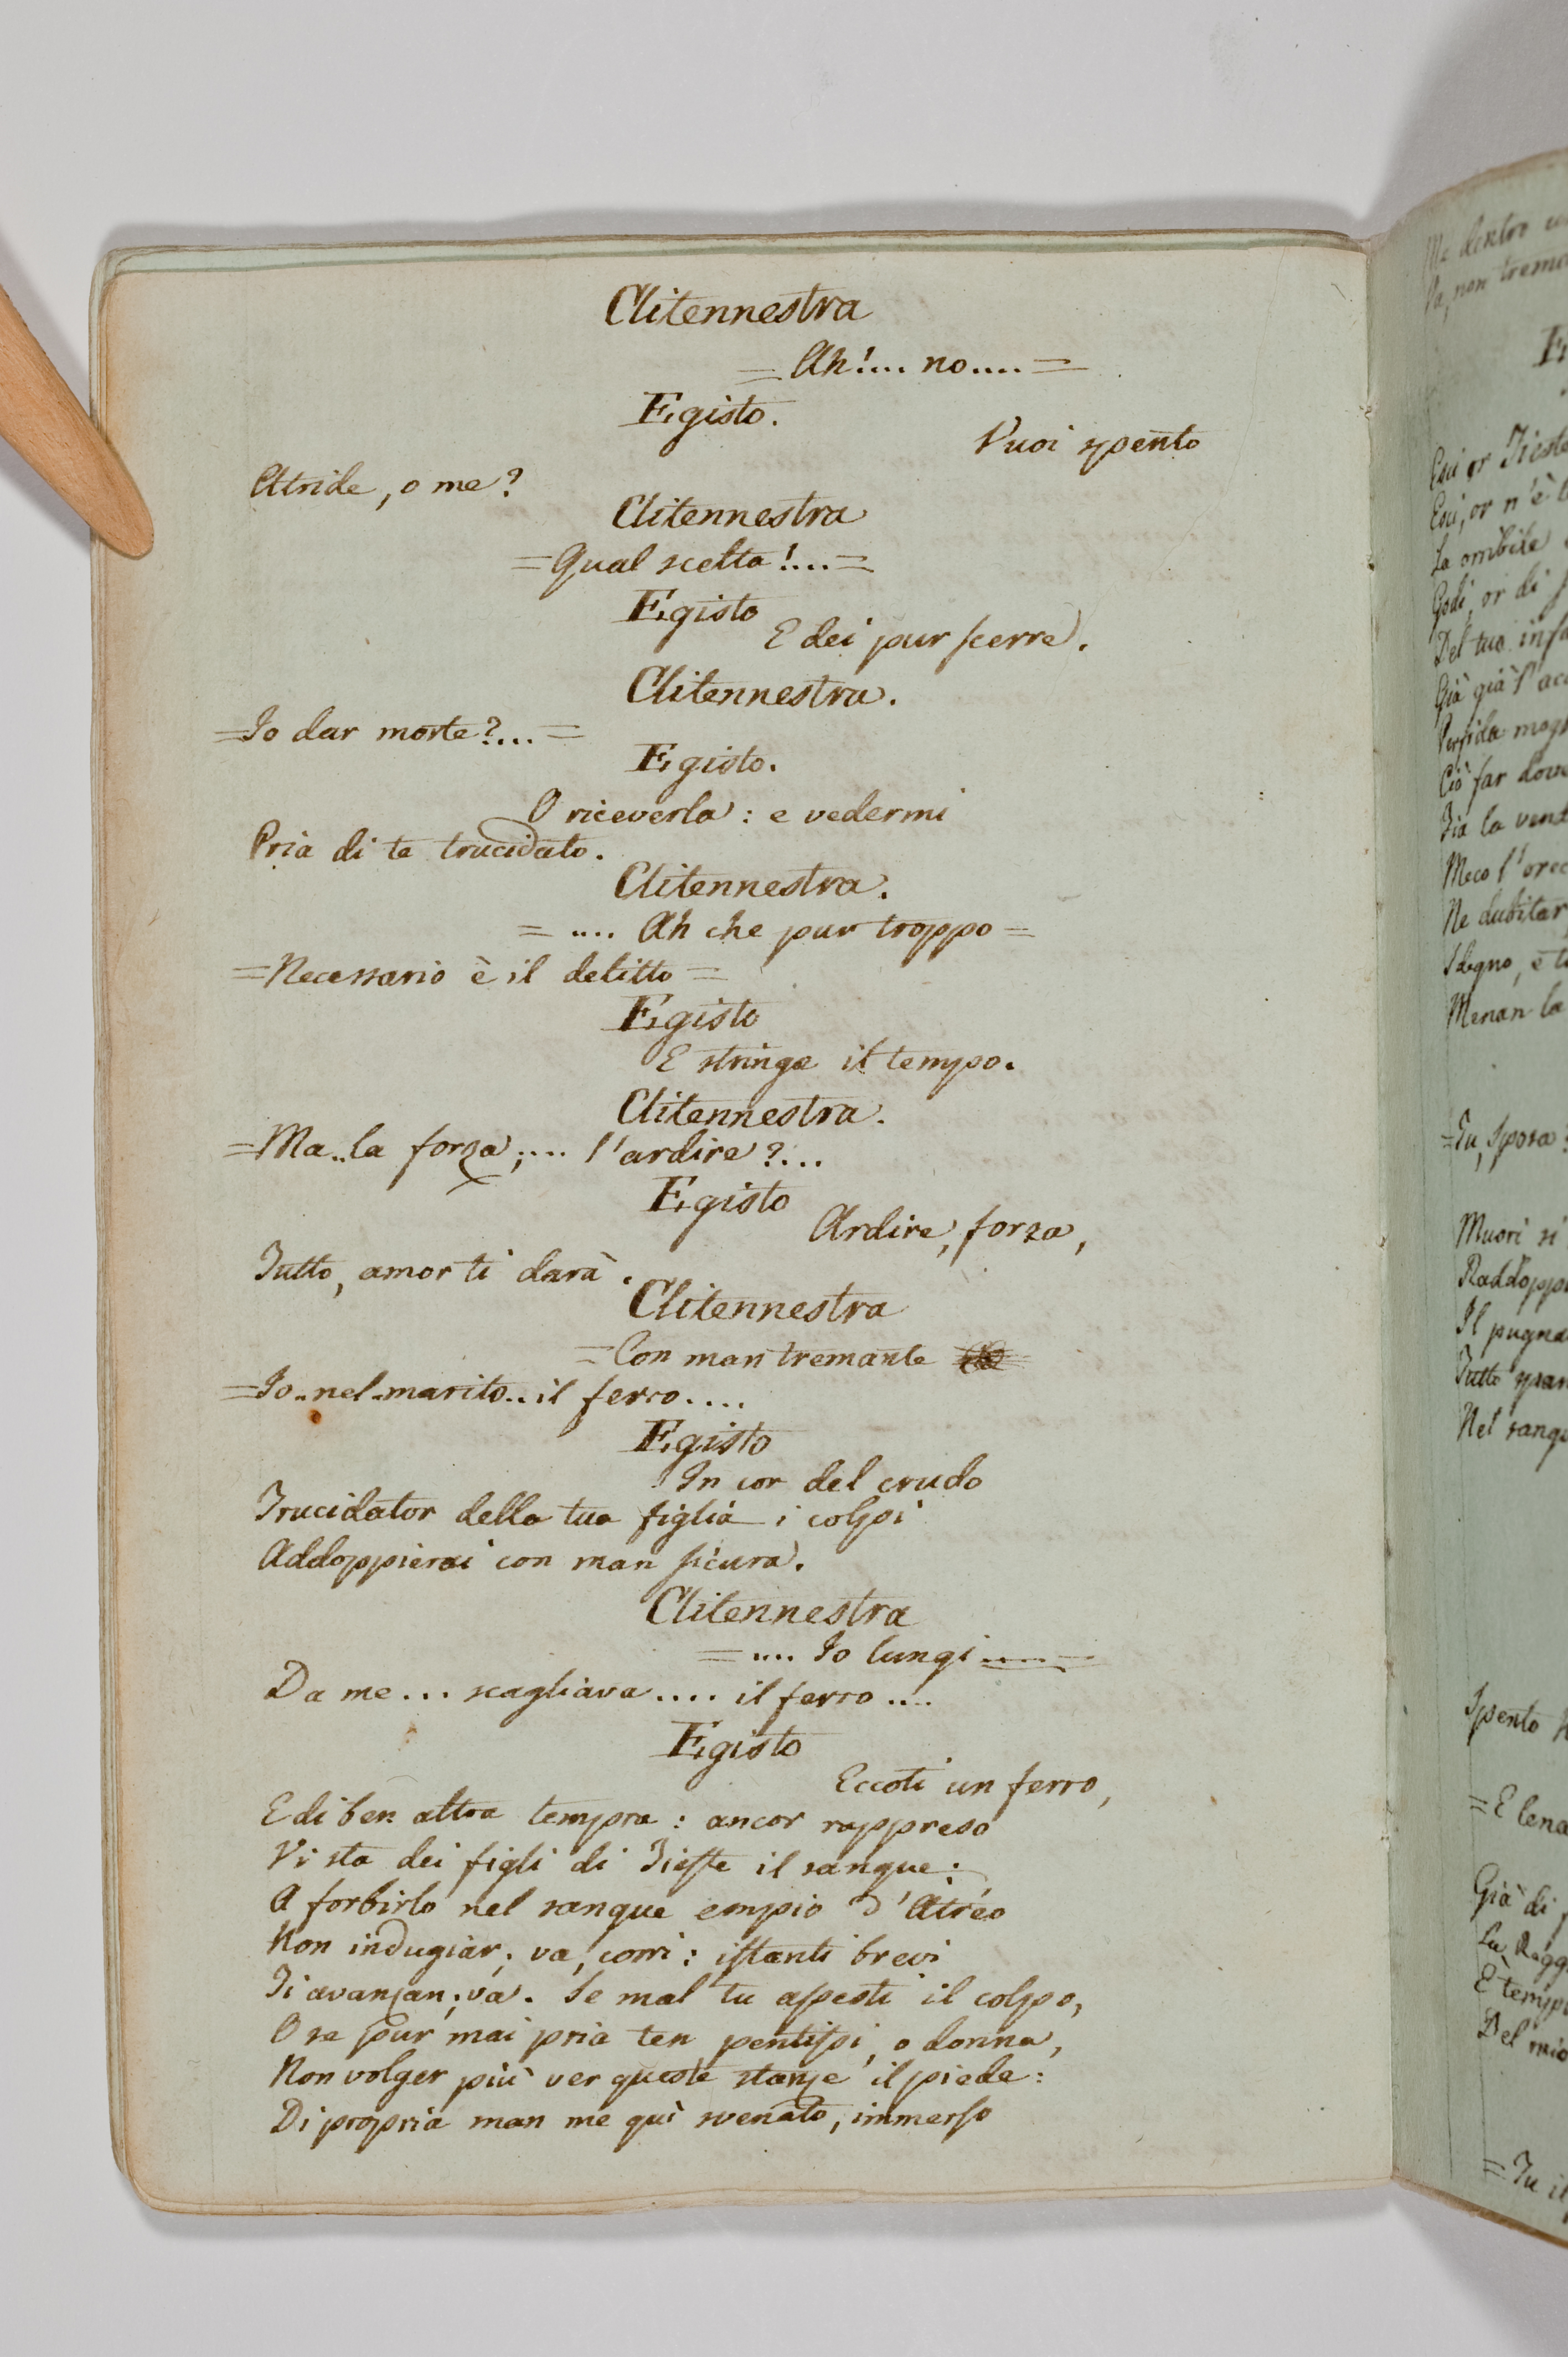 Clitennestra
= Ah!.... no.... =
Egisto.
Vuoi spento
Atride, o me?
Clitennestra
= Qual scelta!... =
Egisto
E dei pur scerre.
Clitennestra.
= Io dar morte?... =
Egisto.
O riceverla: e vedermi
Pria di te trucidato.
Clitennestra.
= .... Ah che pur troppo =
= Necessario è il delitto =
Egisto
E stringe il tempo.
Clitennestra.
= Ma..la forza;.... l'ardire?...
Egisto
Ardire, forza,
Tutto, amor ti darà.
Clitennestra
= Con man tremante
= Io..nel..marito..il ferro....
Egisto
In cor del crudo
Trucidator della tua figlia i colpi
Addoppierai con man sicura.
Clitennestra
= .... Io lungi .... =
Da me... scagliava.... il ferro....
Egisto
Eccoti un ferro,
E di ben altra tempra: ancor rappreso
Vi sta dei figli di Tieste il sangue:
A forbirlo nel sangue empio d'Atréo
Non indugiar; va, corri: istanti brevi
Ti avanzan; va. Se mal tu assesti il colpo,
O se pur mai pria ten pentissi, o donna,
Non volger più ver queste stanze il piede:
Di propria man me quì svenato, immerso
Ma dentro
Va, non
Esci or Tieste
Esci, or n'è
La orribile
Godi, or di
Del tuo
Già già l'
Perfida
Ciò far
Fia la
Meco l'
Ne dubitar
Sdegno, e
Menan la
= Tu, sposa?
Muori sì
Il
Tutto
Nel
Spento
= E
Già di
Su,
È
Del mio
= Tu